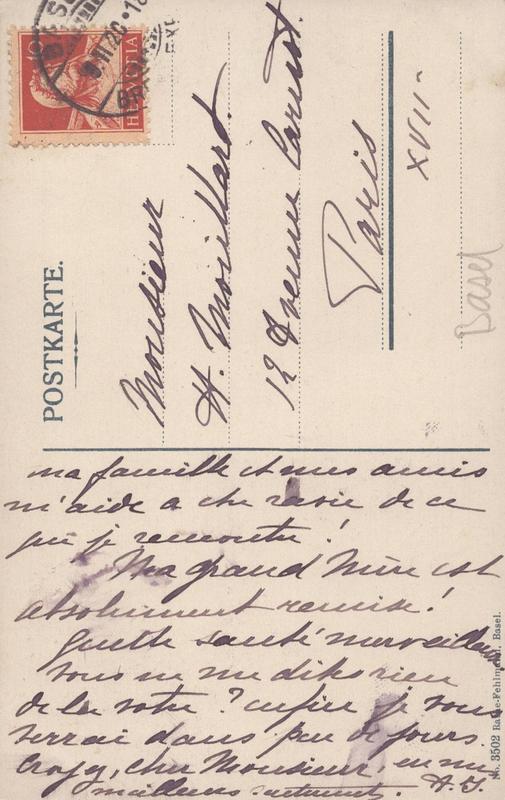 POSTKARTE.
HELVETIA
10
Monsieur
H. Mouillard.
12 Avenue Carnot.
Paris
XVII
Basel
ma famille et mes amis
m'aide a être ravie de ce
que je rencontre!
Ma grand Mère est
absolument remise!
Quelle santé merveilleuse
vous ne me dites rien
de la votre? enfin je vous
verrai dans peu de jours.
Croyez, cher Monsieur, en mes
meilleurs sentiments. A.J.
No. 3502 Rathe-Fehlmann, Basel.